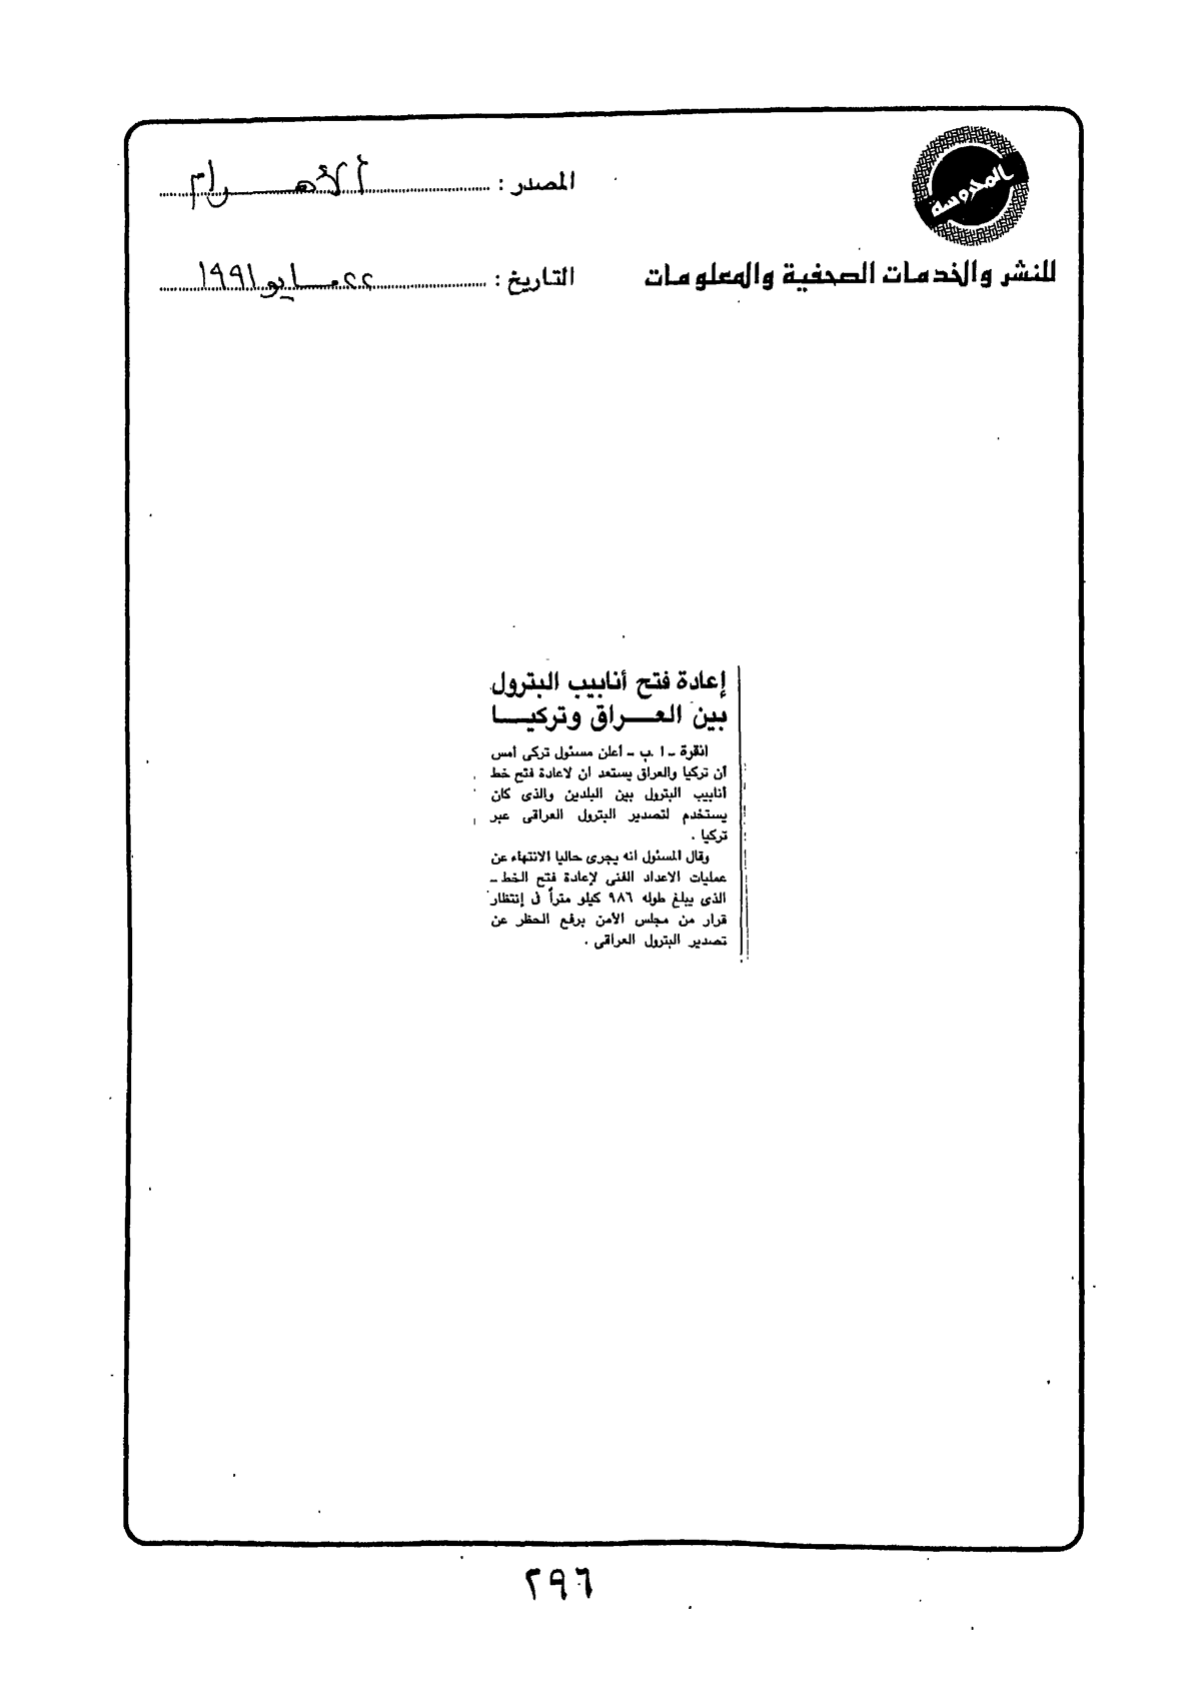 المحروسة
للنشر والخدمات الصحفية والمعلومات
المصدر : الأهرام
التاريخ : ٢٢ مايو ١٩٩١
إعادة فتح أنابيب البترول
بين العراق وتركيا
انقرة - ا . ب - أعلن مسئول تركى أمس
أن تركيا والعراق يستعد ان لاعادة فتح خط
أنابيب البترول بين البلدين والذى كان
يستخدم لتصدير البترول العراقى عبر
تركيا .
وقال المسئول انه يجرى حاليا الانتهاء عن
عمليات الاعداد الفنى لإعادة فتح الخط -
الذى يبلغ طوله ٩٨٦ كيلو متراً فى إنتظار
قرار من مجلس الأمن برفع الحظر عن
تصدير البترول العراقى .
٢٩٦